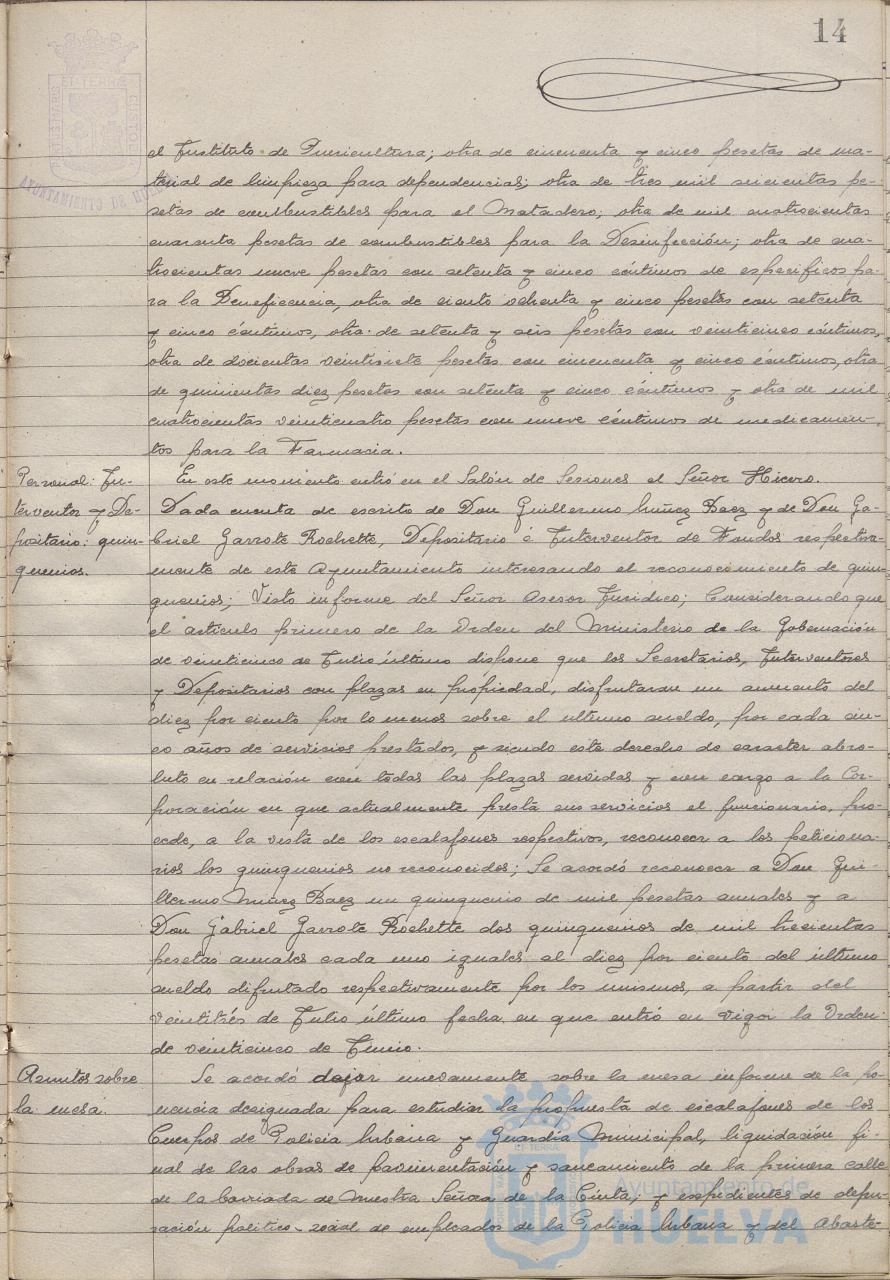 14
PORTUS MARIS
ET TERRAE
CUSTODIA
AYUNTAMIENTO DE HUELVA
el Instituto de Puericultura; otra de cincuenta y cinco pesetas de ma-
terial de limpieza para dependencias; otra de tres mil seicientas pe-
setas de combustibles para el Matadero; otra de mil cuatrocientas
cuarenta pesetas de combustibles para la Desinfección; otra de cua-
trocientas nueve pesetas con setenta y cinco céntimos de especificos pa-
ra la Beneficencia, otra de ciento ochenta y cinco pesetas con setenta
y cinco céntimos, otra de setenta y seis pesetas con veinticinco céntimos,
otra de docientas veintisiete pesetas con cincuenta y cinco céntimos, otra
de quinientas diez pesetas con setenta y cinco céntimos y otra de mil
cuatrocientas veinticuatro pesetas con nueve céntimos de medicamen-
tos para la Farmacia.
En este momento entró en el Salón de Sesiones el Señor Hierro.
Personal: In-
terventor y De-
positario: quin-
quenios.
Dada cuenta de escrito de Don Guillermo Núñez Baez y de Don Ga-
briel Garrote Rochette, Depositario é Interventor de Fondos respectiva-
mente de este Ayuntamiento interesando el reconocimiento de quin-
quenios; Visto informe del Señor Asesor Juridico; Considerando que
el articulo primero de la Orden del Ministerio de la Gobernación
de veinticinco de Julio último dispone que los Secretarios, Interventores
y Depositarios con plazas en propiedad, disfrutaran un aumento del
diez por ciento por lo menos sobre el último sueldo, por cada cin-
co años de servicios prestados, y siendo este derecho de caracter abso-
luto en relación con todas las plazas servidas y con cargo a la Cor-
poración en que actualmente presta sus servicios el funcionario, pro-
cede, a la vista de los escalafones respectivos, reconocer a los peticiona-
rios los quinquenios no reconocidos; Se acordó reconocer a Don Gui-
llermo Núñez Baez un quinquenio de mil pesetas anuales y a
Don Gabriel Garrote Rochette dos quinquenios de mil trecientas
pesetas anuales cada uno iguales al diez por ciento del último
sueldo difrutado respectivamente por los mismos, a partir del
veintitrés de Julio último fecha en que entró en vigor la Orden
de veinticinco de Junio.
Asuntos sobre
la mesa.
Se acordó dejar nuevamente sobre la mesa informe de la po-
nencia designada para estudiar la propuesta de escalafones de los
Cuerpos de Policia Urbana y Guardia Municipal, liquidación fi-
nal de las obras de pavimentación y saneamiento de la primera calle
de la barriada de Nuestra Señora de la Cinta; y expedientes de depu-
ración politico-social de empleados de la Policia Urbana y del Abaste-
Ayuntamiento de
HUELVA